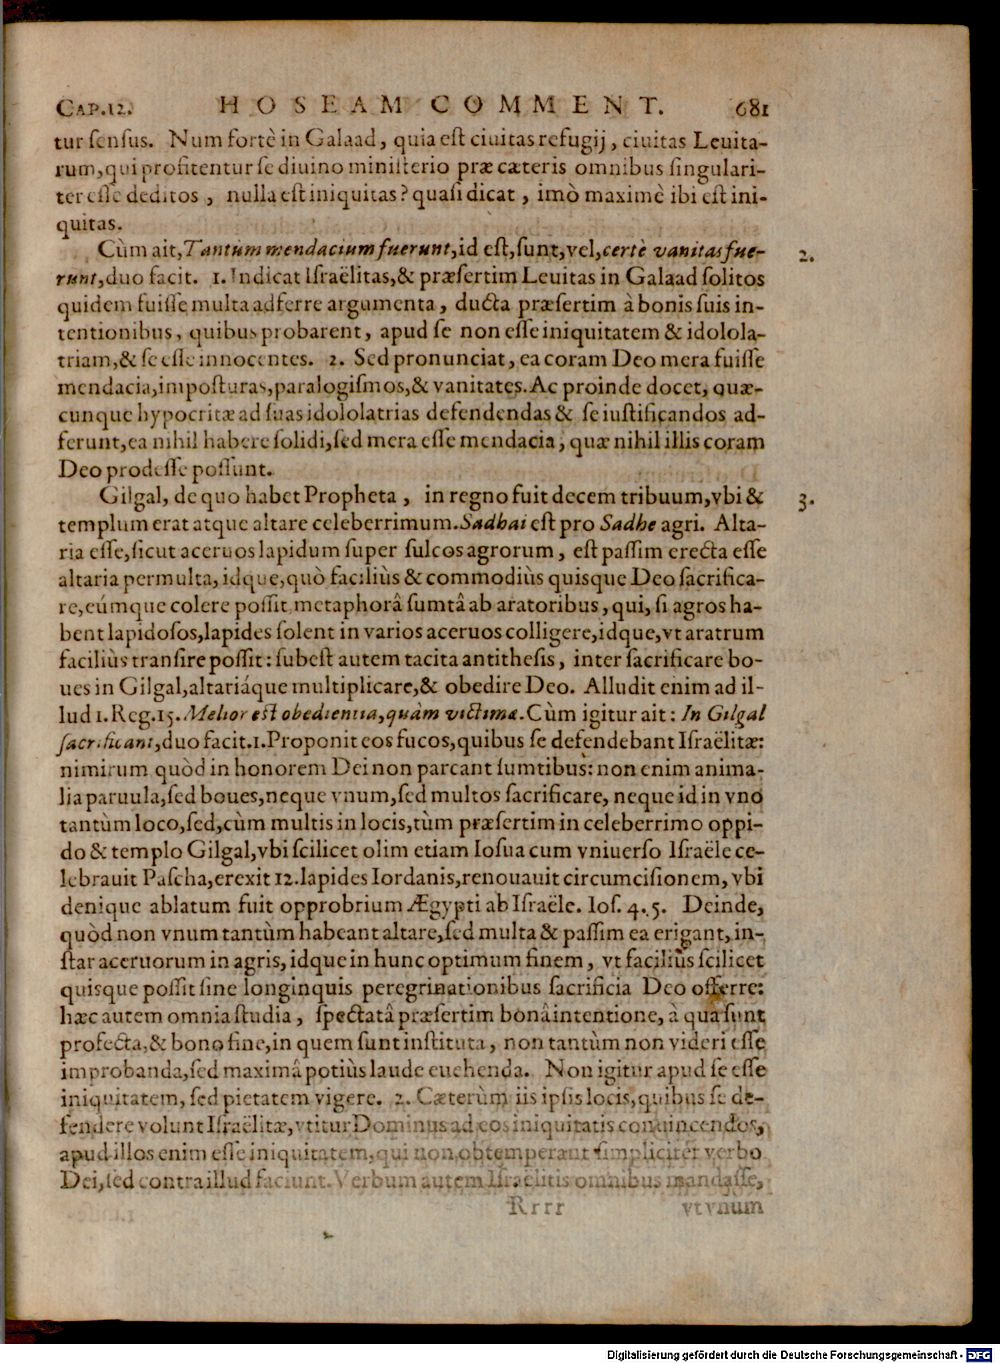 CAP. 12. HOSEAM COMMENT. 681
tur ſenſus. Num fortè in Galaad, quia eſt ciuitas refugij, ciuitas Leuita-
rum, qui profitentur ſe diuino miniſterio præ cæteris omnibus ſingulari-
ter eſſe deditos, nulla eſt iniquitas? quaſi dicat, imò maximè ibi eſt ini-
quitas.
Cùm ait, Tantùm mendacium fuerunt, id eſt, ſunt, vel, certè vanitas fue- 2.
runt, duo facit. 1. Indicat Iſraëlitas, & præſertim Leuitas in Galaad ſolitos
quidem fuiſſe multa adferre argumenta, ducta præſertim à bonis ſuis in-
tentionibus, quibus probarent, apud ſe non eſſe iniquitatem & idolola-
triam, & ſe eſſe innocentes. 2. Sed pronunciat, ea coram Deo mera fuiſſe
mendacia, impoſturas, paralogiſmos, & vanitates. Ac proinde docet, quæ-
cunque hypocritæ ad ſuas idololatrias defendendas & ſe iuſtificandos ad-
ferunt, ea nihil habere ſolidi, ſed mera eſſe mendacia, quæ nihil illis coram
Deo prodeſſe poſſunt.
Gilgal, de quo habet Propheta, in regno fuit decem tribuum, vbi & 3.
templum erat atque altare celeberrimum. Sadhai eſt pro Sadhe agri. Alta-
ria eſſe, ſicut aceruos lapidum ſuper ſulcos agrorum, eſt paſſim erecta eſſe
altaria permulta, idque, quò faciliùs & commodiùs quisque Deo ſacrifica-
re, eúmque colere poſſit, metaphorâ ſumtâ ab aratoribus, qui, ſi agros ha-
bent lapidoſos, lapides ſolent in varios aceruos colligere, idque, vt aratrum
faciliùs tranſire poſſit: ſubeſt autem tacita antitheſis, inter ſacrificare bo-
ues in Gilgal, altariáque multiplicare, & obedire Deo. Alludit enim ad il-
lud 1. Reg. 15. Melior eſt obedientia, quàm victimæ. Cùm igitur ait: In Gilgal
ſacrificant, duo facit. 1. Proponit eos fucos, quibus ſe defendebant Iſraëlitæ:
nimirum quòd in honorem Dei non parcant ſumtibus: non enim anima-
lia paruula, ſed boues, neque vnum, ſed multos ſacrificare, neque id in vno
tantùm loco, ſed, cùm multis in locis, tùm præſertim in celeberrimo oppi-
do & templo Gilgal, vbi ſcilicet olim etiam Ioſua cum vniuerſo Iſraële ce-
lebrauit Paſcha, erexit 12. lapides Iordanis, renouauit circumciſionem, vbi
denique ablatum fuit opprobrium Ægypti ab Iſraële. Ioſ. 4. 5. Deinde,
quòd non vnum tantùm habeant altare, ſed multa & paſſim ea erigant, in-
ſtar aceruorum in agris, idque in hunc optimum finem, vt faciliùs ſcilicet
quisque poſſit ſine longinquis peregrinationibus ſacrificia Deo offerre:
hæc autem omnia ſtudia, ſpectatâ præſertim bonâ intentione, à qua ſunt
profecta, & bono fine, in quem ſunt inſtituta, non tantùm non videri eſſe
improbanda, ſed maximâ potiùs laude euehenda. Non igitur apud ſe eſſe
iniquitatem, ſed pietatem vigere. 2. Cæterùm iis ipſis locis, quibus ſe de-
fendere volunt Iſraëlitæ, vtitur Dominus ad eos iniquitatis conuincendos,
apud illos enim eſſe iniquitatem, qui non obtemperant ſimpliciter verbo
Dei, ſed contra illud faciunt. Verbum autem Iſraelitis omnibus mandaſſe,
Rrrr vt vnum
Digitalisierung gefördert durch die Deutsche Forschungsgemeinschaft - DFG